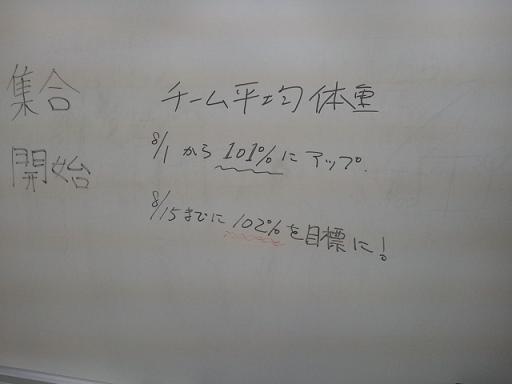 集合
開始
チーム平均体重
8/1から101%にアップ.
8/15までに102%を目標に!